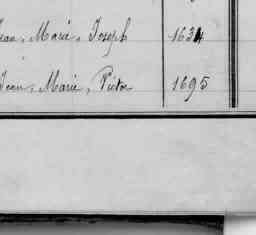 Jean, Marie, Joseph 1634
Jean, Marie, Victor 1695